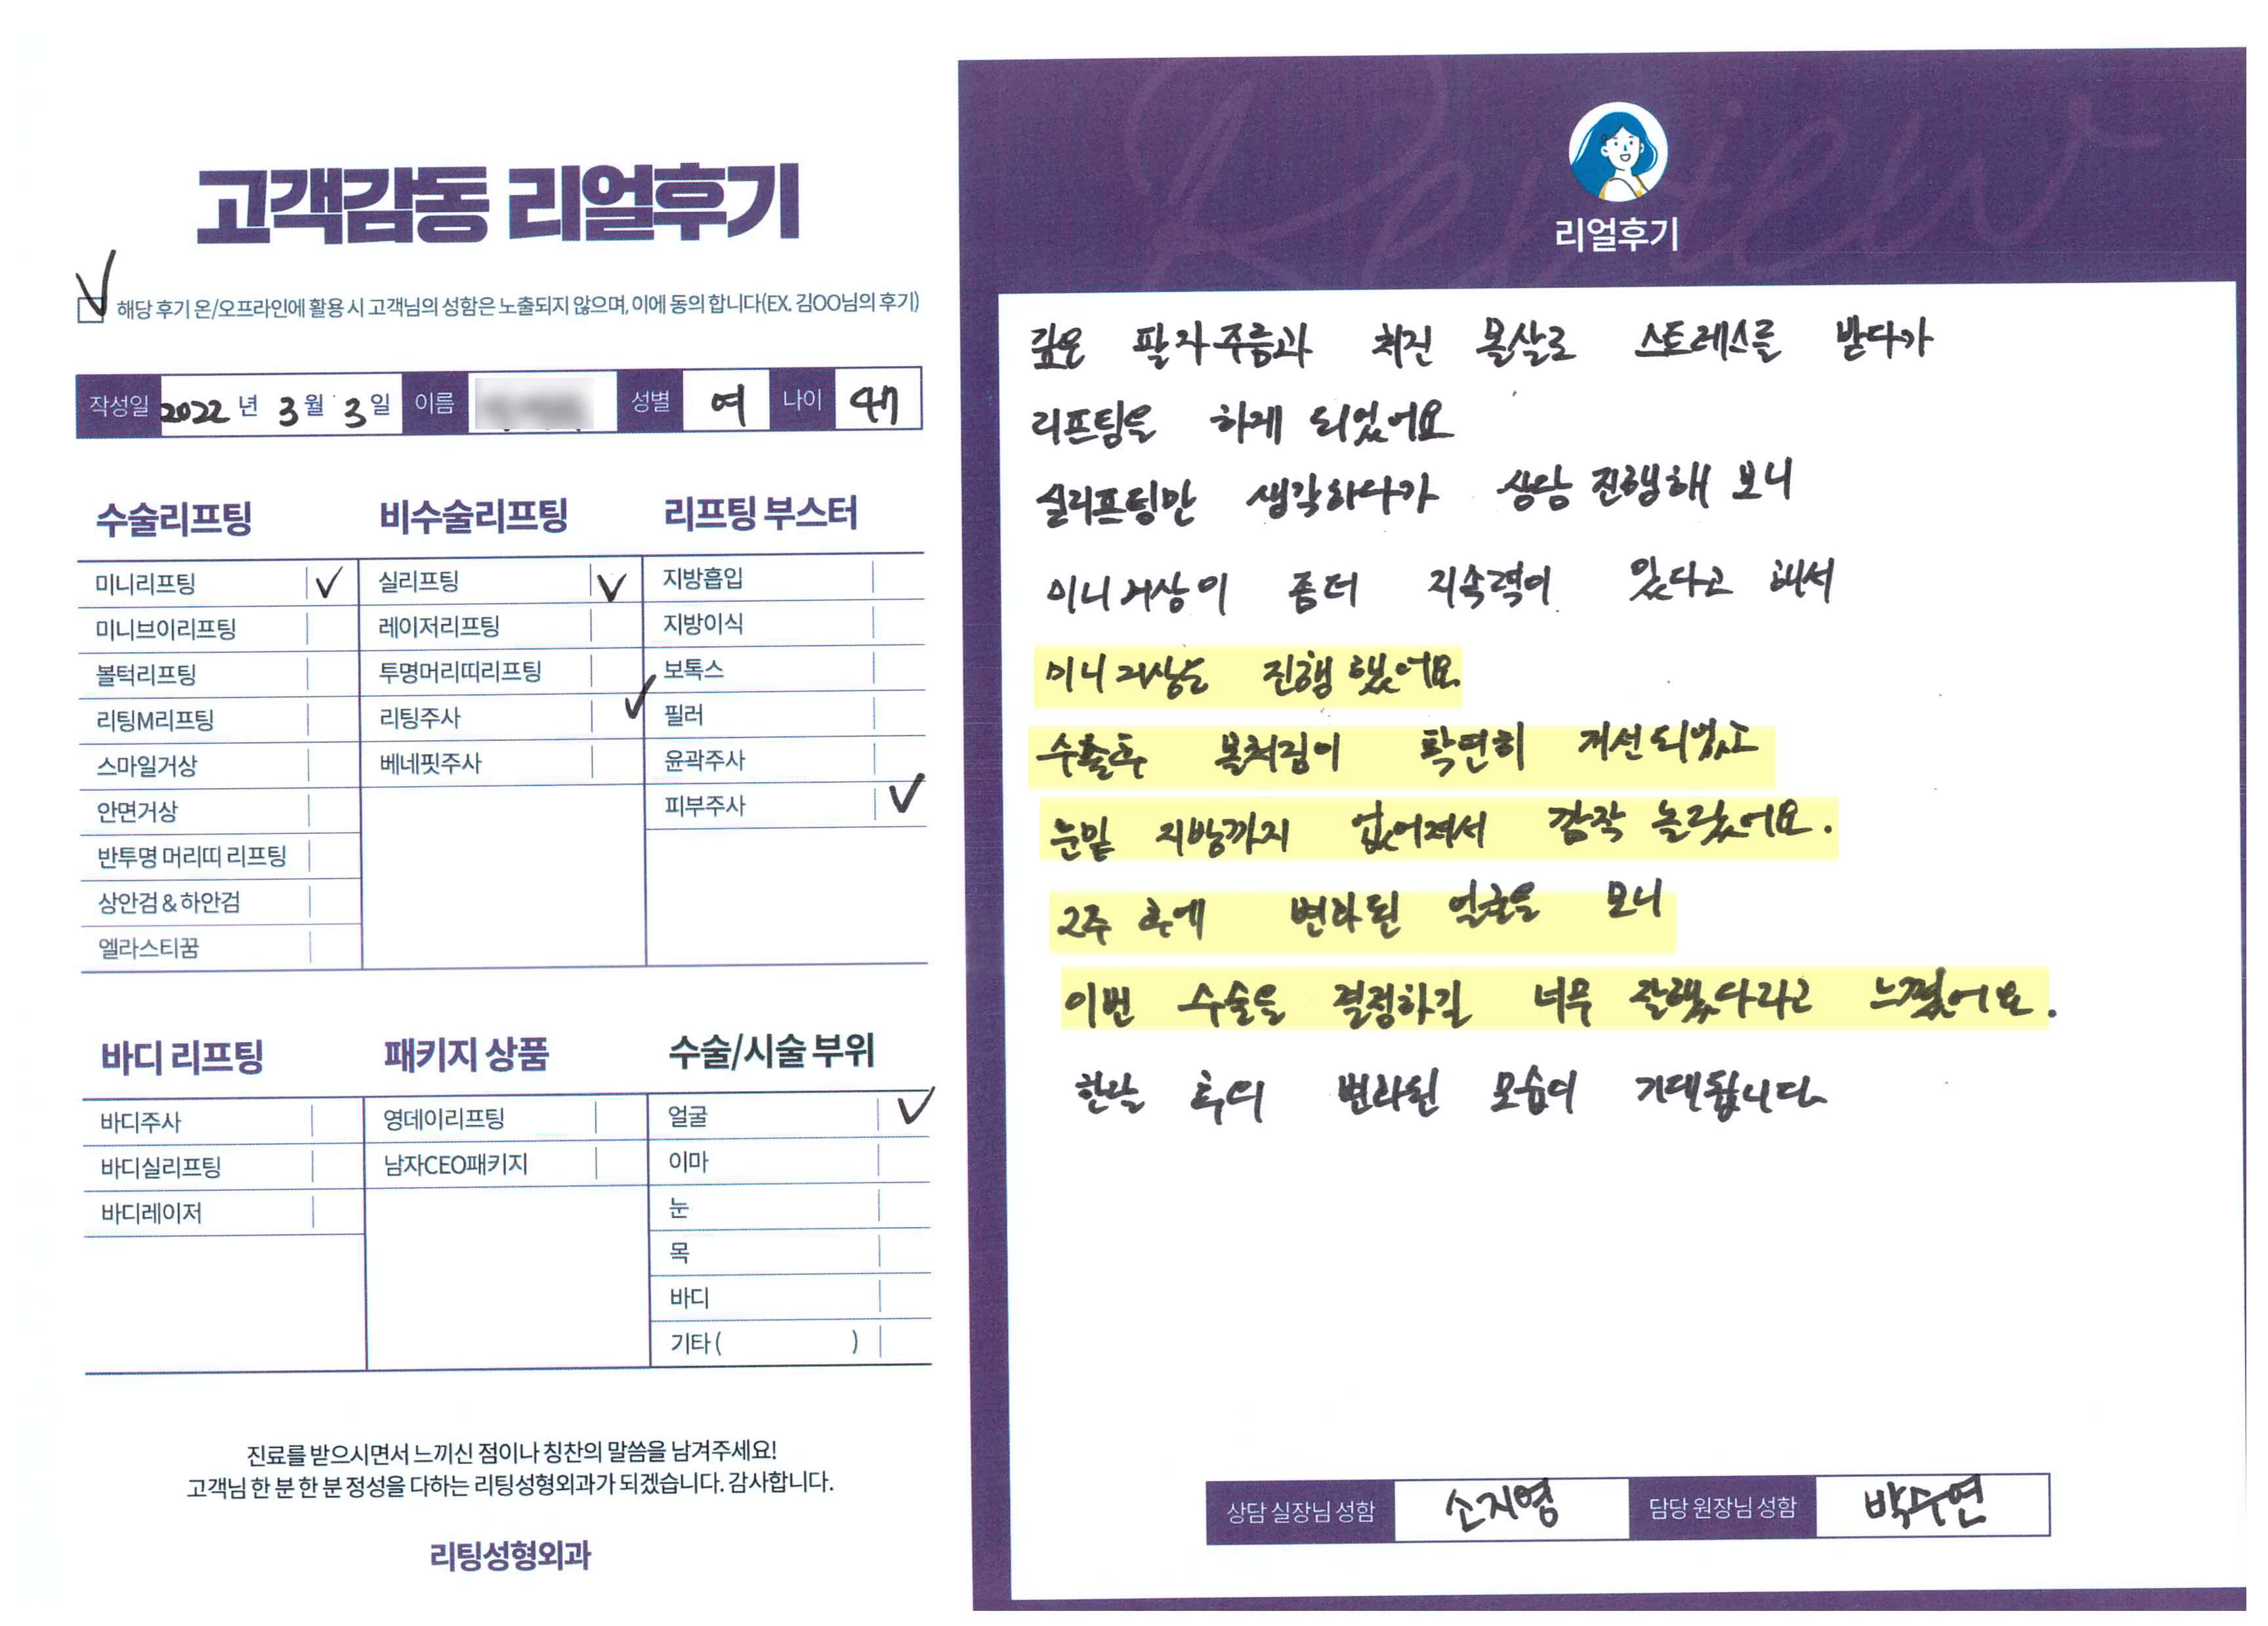 고객감동 리얼후기
해당 후기 온/오프라인에 활용 시 고객님의 성함은 노출되지 않으며, 이에 동의 합니다(EX. 김OO님의 후기)
작성일 2022 년 3 월 3 일 이름 성별 여 나이 47
수술리프팅
미니리프팅 ✓
미니브이리프팅
볼턱리프팅
리팅M리프팅
스마일거상
안면거상
반투명 머리띠 리프팅
상안검 & 하안검
엘라스티꿈
비수술리프팅
실리프팅 ✓
레이저리프팅
투명머리띠리프팅
리팅주사 ✓
베네핏주사
리프팅 부스터
지방흡입
지방이식
보톡스
필러
윤곽주사
피부주사 ✓
바디 리프팅
바디주사
바디실리프팅
바디레이저
패키지 상품
영데이리프팅
남자CEO패키지
수술/시술 부위
얼굴 ✓
이마
눈
목
바디
기타 ( )
진료를 받으시면서 느끼신 점이나 칭찬의 말씀을 남겨주세요!
고객님 한 분 한 분 정성을 다하는 리팅성형외과가 되겠습니다. 감사합니다.
리팅성형외과
Review
리얼후기
깊은 팔자주름과 처진 볼살로 스트레스를 받다가
리프팅을 하게 되었어요
실리프팅만 생각하다가 상담 진행해 보니
미니거상이 좀더 지속력이 있다고 해서
미니거상을 진행했어요
수술후 볼처짐이 확연히 개선되었고
눈밑 지방까지 없어져서 깜작 놀랐어요.
2주 후에 변화된 얼굴을 보니
이번 수술을 결정하길 너무 잘했다라고 느꼈어요.
한달 후의 변화된 모습이 기대됩니다
상담 실장님 성함 소지영 담당 원장님 성함 박수연